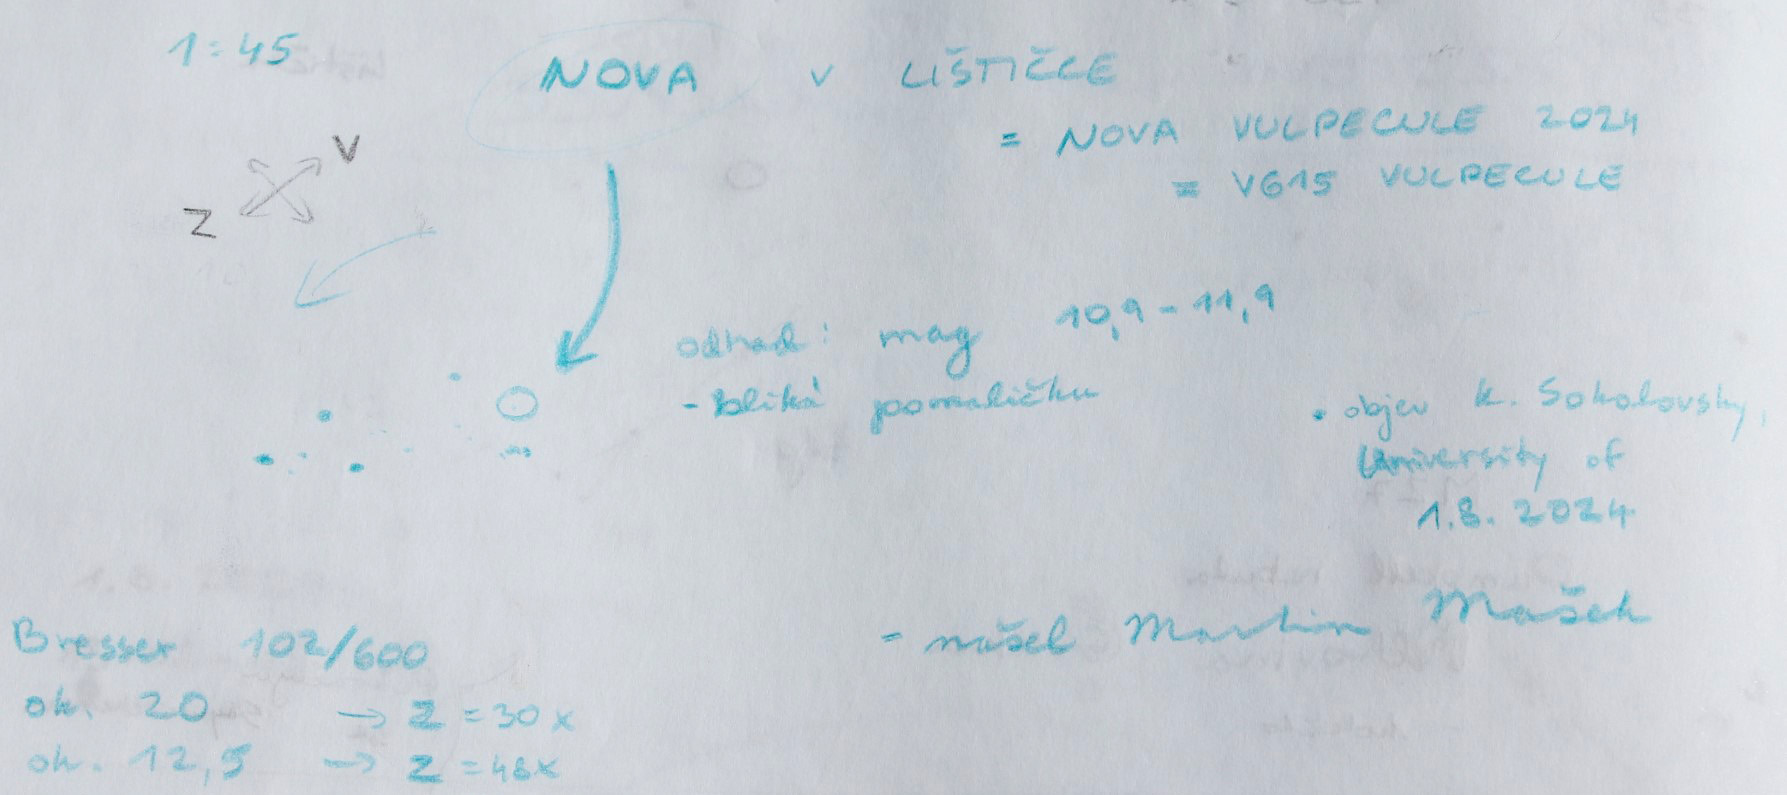 1:45
NOVA V LIŠTIČCE
= NOVA VULPECULE 2024
= V615 VULPECULE
V
Z
odhad: mag 10,9 - 11,9
- bliká pomaličku
• objev K. Sokolovsky,
University of
1.8. 2024
- našel Martin Mašek
Bresser 102/600
ok. 20 → Z = 30x
ok. 12,5 → Z = 48x